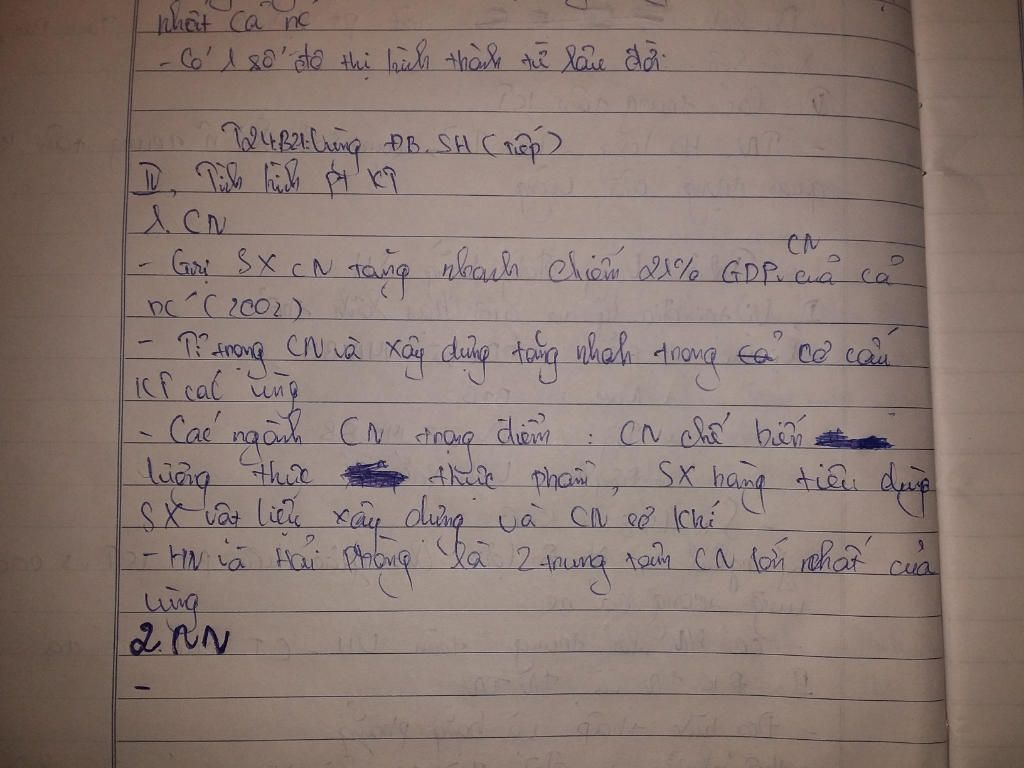 nhất cả nc
- Có 1 số đô thị hình thành từ lâu đời.
T24.B21: Vùng ĐB.SH (tiếp)
IV, Tình hình pt KT
1. CN
CN
- Gtrị SX CN tăng nhanh chiếm 21% GDP của cả
nc (2002)
- Tỉ trọng CN và xây dựng tăng nhah trong cơ cấu
KT các vùng
- Các ngành CN trọng điểm : CN chế biến
lương thực thực phẩm, SX hàng tiêu dùng
SX vật liệu xây dựng và CN cơ khí
- HN và Hải Phòng là 2 trung tâm CN lớn nhất của
vùng
2. NN
-